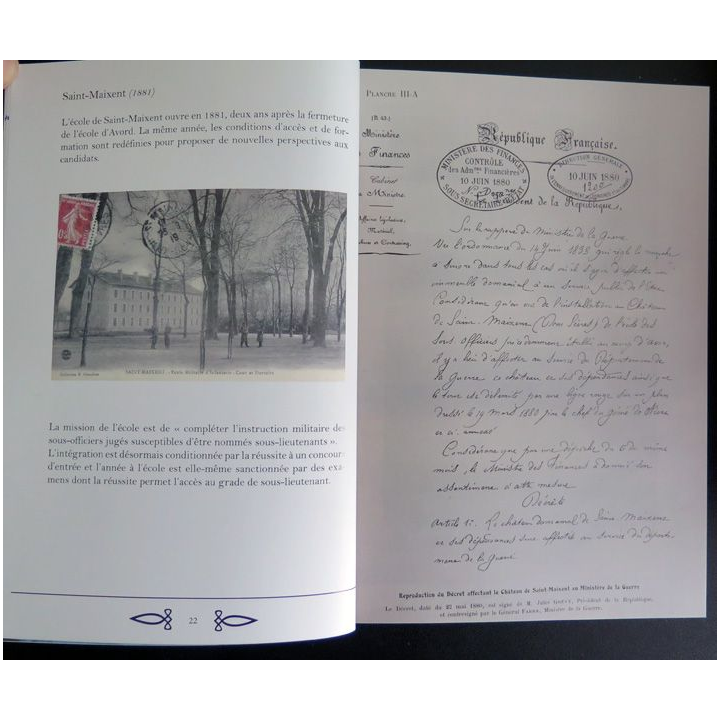 Saint-Maixent (1881)
L'école de Saint-Maixent ouvre en 1881, deux ans après la fermeture
de l'école d'Avord. La même année, les conditions d'accès et de for-
mation sont redéfinies pour proposer de nouvelles perspectives aux
candidats.
SAINT-MAIXENT - École Militaire d'Infanterie
La mission de l'école est de « compléter l'instruction militaire des
sous-officiers jugés susceptibles d'être nommés sous-lieutenants ».
L'intégration est désormais conditionnée par la réussite à un concours
d'entrée et l'année à l'école est elle-même sanctionnée par des exa-
mens dont la réussite permet l'accès au grade de sous-lieutenant.
22
PLANCHE III-A
Ministère
Finances
Cabinet
Ministre.
République Française.
MINISTÈRE DES FINANCES
CONTRÔLE
des Admons Financières
10 JUIN 1880
SOUS SECRETARIAT D'ETAT
DIRECTION GENERALE
10 JUIN 1880
de la République,
Sur le rapport du Ministre de la Guerre
Vu l'ordonnance du 14 Juin 1833 qui règle la marche
à suivre dans tous les cas où il s'agit d'affecter un
immeuble domanial à un service public de l'Etat
Considérant qu'en vue de l'installation au Château
de Saint-Maixent (Deux Sèvres) de l'école des
Sous officiers précédemment établie au camp d'Avor,
il y a lieu d'affecter au service du Département de
la Guerre ce château et ses dépendances ainsi que
le tout est délimité par une ligne rouge sur un plan
dressé le 19 Mars 1880 par le chef du génie de
Considérant que par une dépêche du 6 du même
mois, le Ministre des Finances a donné son
assentiment à cette mesure
Décrète
Article 1er. Le château domanial de Saint Maixent
et ses dépendances sont affectés au service du départe-
ment de la Guerre
Reproduction du Décret affectant le Château de Saint-Maixent au Ministère de la Guerre
Le Décret, daté du 27 mai 1880, est signé de M. Jules Grévy, Président de la République,
et contresigné par le Général Farre, Ministre de la Guerre.